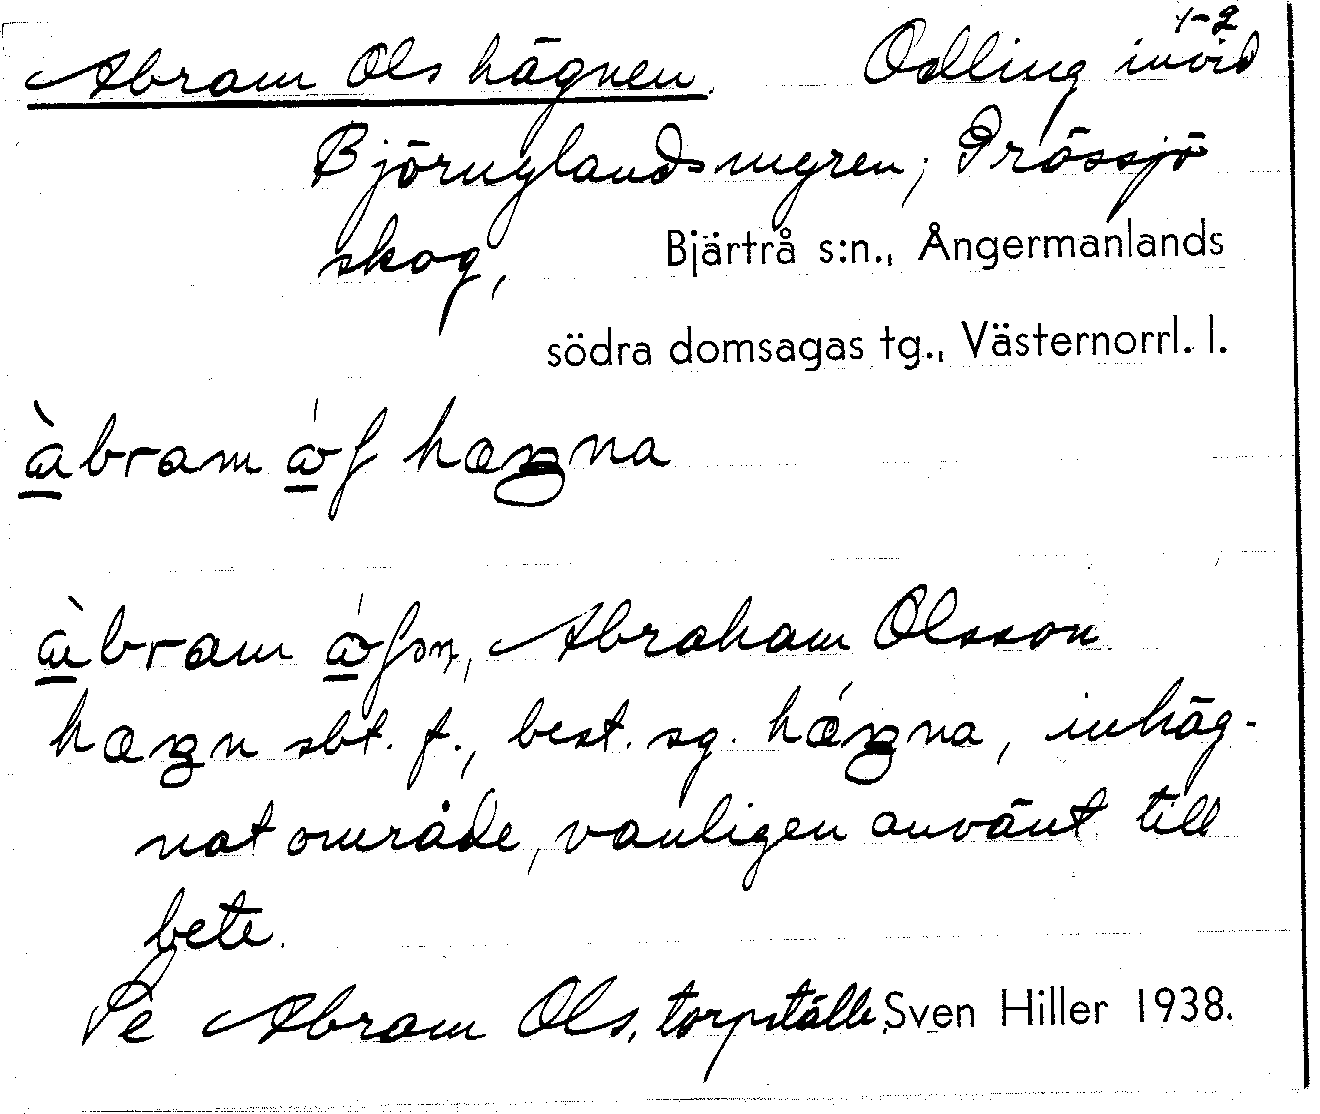 1-2
Abram Ols hägnen. Odling invid
Björnylandsmyren, Prässjö
skog, Bjärtrå s:n., Ångermanlands
södra domsagas tg., Västernorrl. l.
àbram hægna
àbram Abraham Olsson
hægn sbt. f., best. sg. hǽgna, inhäg-
nat område, vanligen använt till
bete.
Abram Ols, torpställe Sven Hiller 1938.